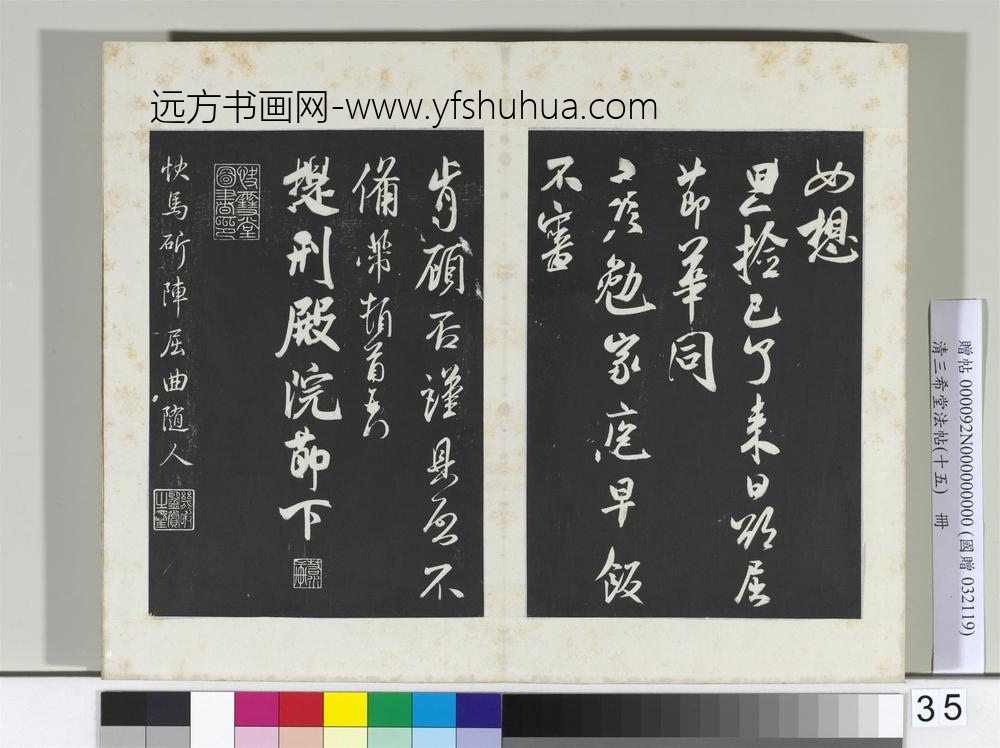 远方书画网-www.yfshuhua.com
如想
旦撿已了來日欲屈
節華同
家庖早飯
不審
肯顧否謹具啟不
備榮頓首
提刑殿院節下
快雪堂
圖書印
快馬斫陣屈曲隨人
贈帖 000092N000000000 (國贈 032119)
清三希堂法帖(十五) 冊
35